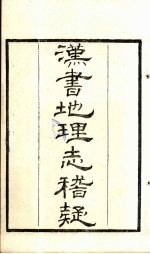 漢書地理志稽疑